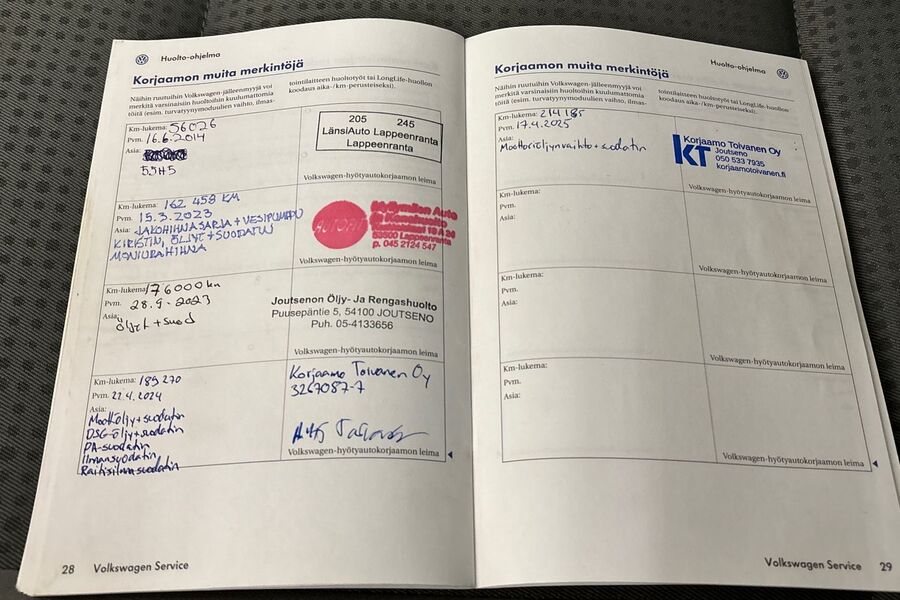 Huolto-ohjelma
Korjaamon muita merkintöjä
Näihin ruutuihin Volkswagen-jälleenmyyjä voi
merkitä varsinaisiin huoltoihin kuulumattomia
töitä (esim. turvatyynymoduulien vaihto, ilmas-
tointilaitteen huoltotyöt tai LongLife-huollon
koodaus aika-/km-perusteiseksi).
Km-lukema: 56026
Pvm. 16.6.2014
Asia:
55H5
205 245
LänsiAuto Lappeenranta
Lappeenranta
Volkswagen-hyötyautokorjaamon leima
Km-lukema: 162 458 KM
Pvm. 15.3.2023
Asia: JAKOHIHNASARJA + VESIPUMPPU
KIRISTIN, ÖLJYT + SUODATUN
MONIURAHIHNA
AUTOFIT
Auto
53500 Lappeenranta
p. 045 2124 547
Volkswagen-hyötyautokorjaamon leima
Km-lukema: 176000 km
Pvm. 28.9-2023
Asia: Öljyt + suod
Joutsenon Öljy- Ja Rengashuolto
Puusepäntie 5, 54100 JOUTSENO
Puh. 05-4133656
Volkswagen-hyötyautokorjaamon leima
Km-lukema: 189 270
Pvm. 22.4.2024
Asia:
Moott.öljy+suodatin
DSG-öljy+suodatin
PA-suodatin
Ilmansuodatin
Raitisilmasuodatin
Korjaamo Toivanen Oy
3267087-7
Volkswagen-hyötyautokorjaamon leima
28 Volkswagen Service
Huolto-ohjelma
Korjaamon muita merkintöjä
Näihin ruutuihin Volkswagen-jälleenmyyjä voi
merkitä varsinaisiin huoltoihin kuulumattomia
töitä (esim. turvatyynymoduulien vaihto, ilmas-
tointilaitteen huoltotyöt tai LongLife-huollon
koodaus aika-/km-perusteiseksi).
Km-lukema: 214 185
Pvm. 17.4.2025
Asia:
Moottoriöljynvaihto + suodatin
KT Korjaamo Toivanen Oy
Joutseno
050 533 7935
korjaamotoivanen.fi
Volkswagen-hyötyautokorjaamon leima
Km-lukema:
Pvm.
Asia:
Volkswagen-hyötyautokorjaamon leima
Km-lukema:
Pvm.
Asia:
Volkswagen-hyötyautokorjaamon leima
Km-lukema:
Pvm.
Asia:
Volkswagen-hyötyautokorjaamon leima
Volkswagen Service 29